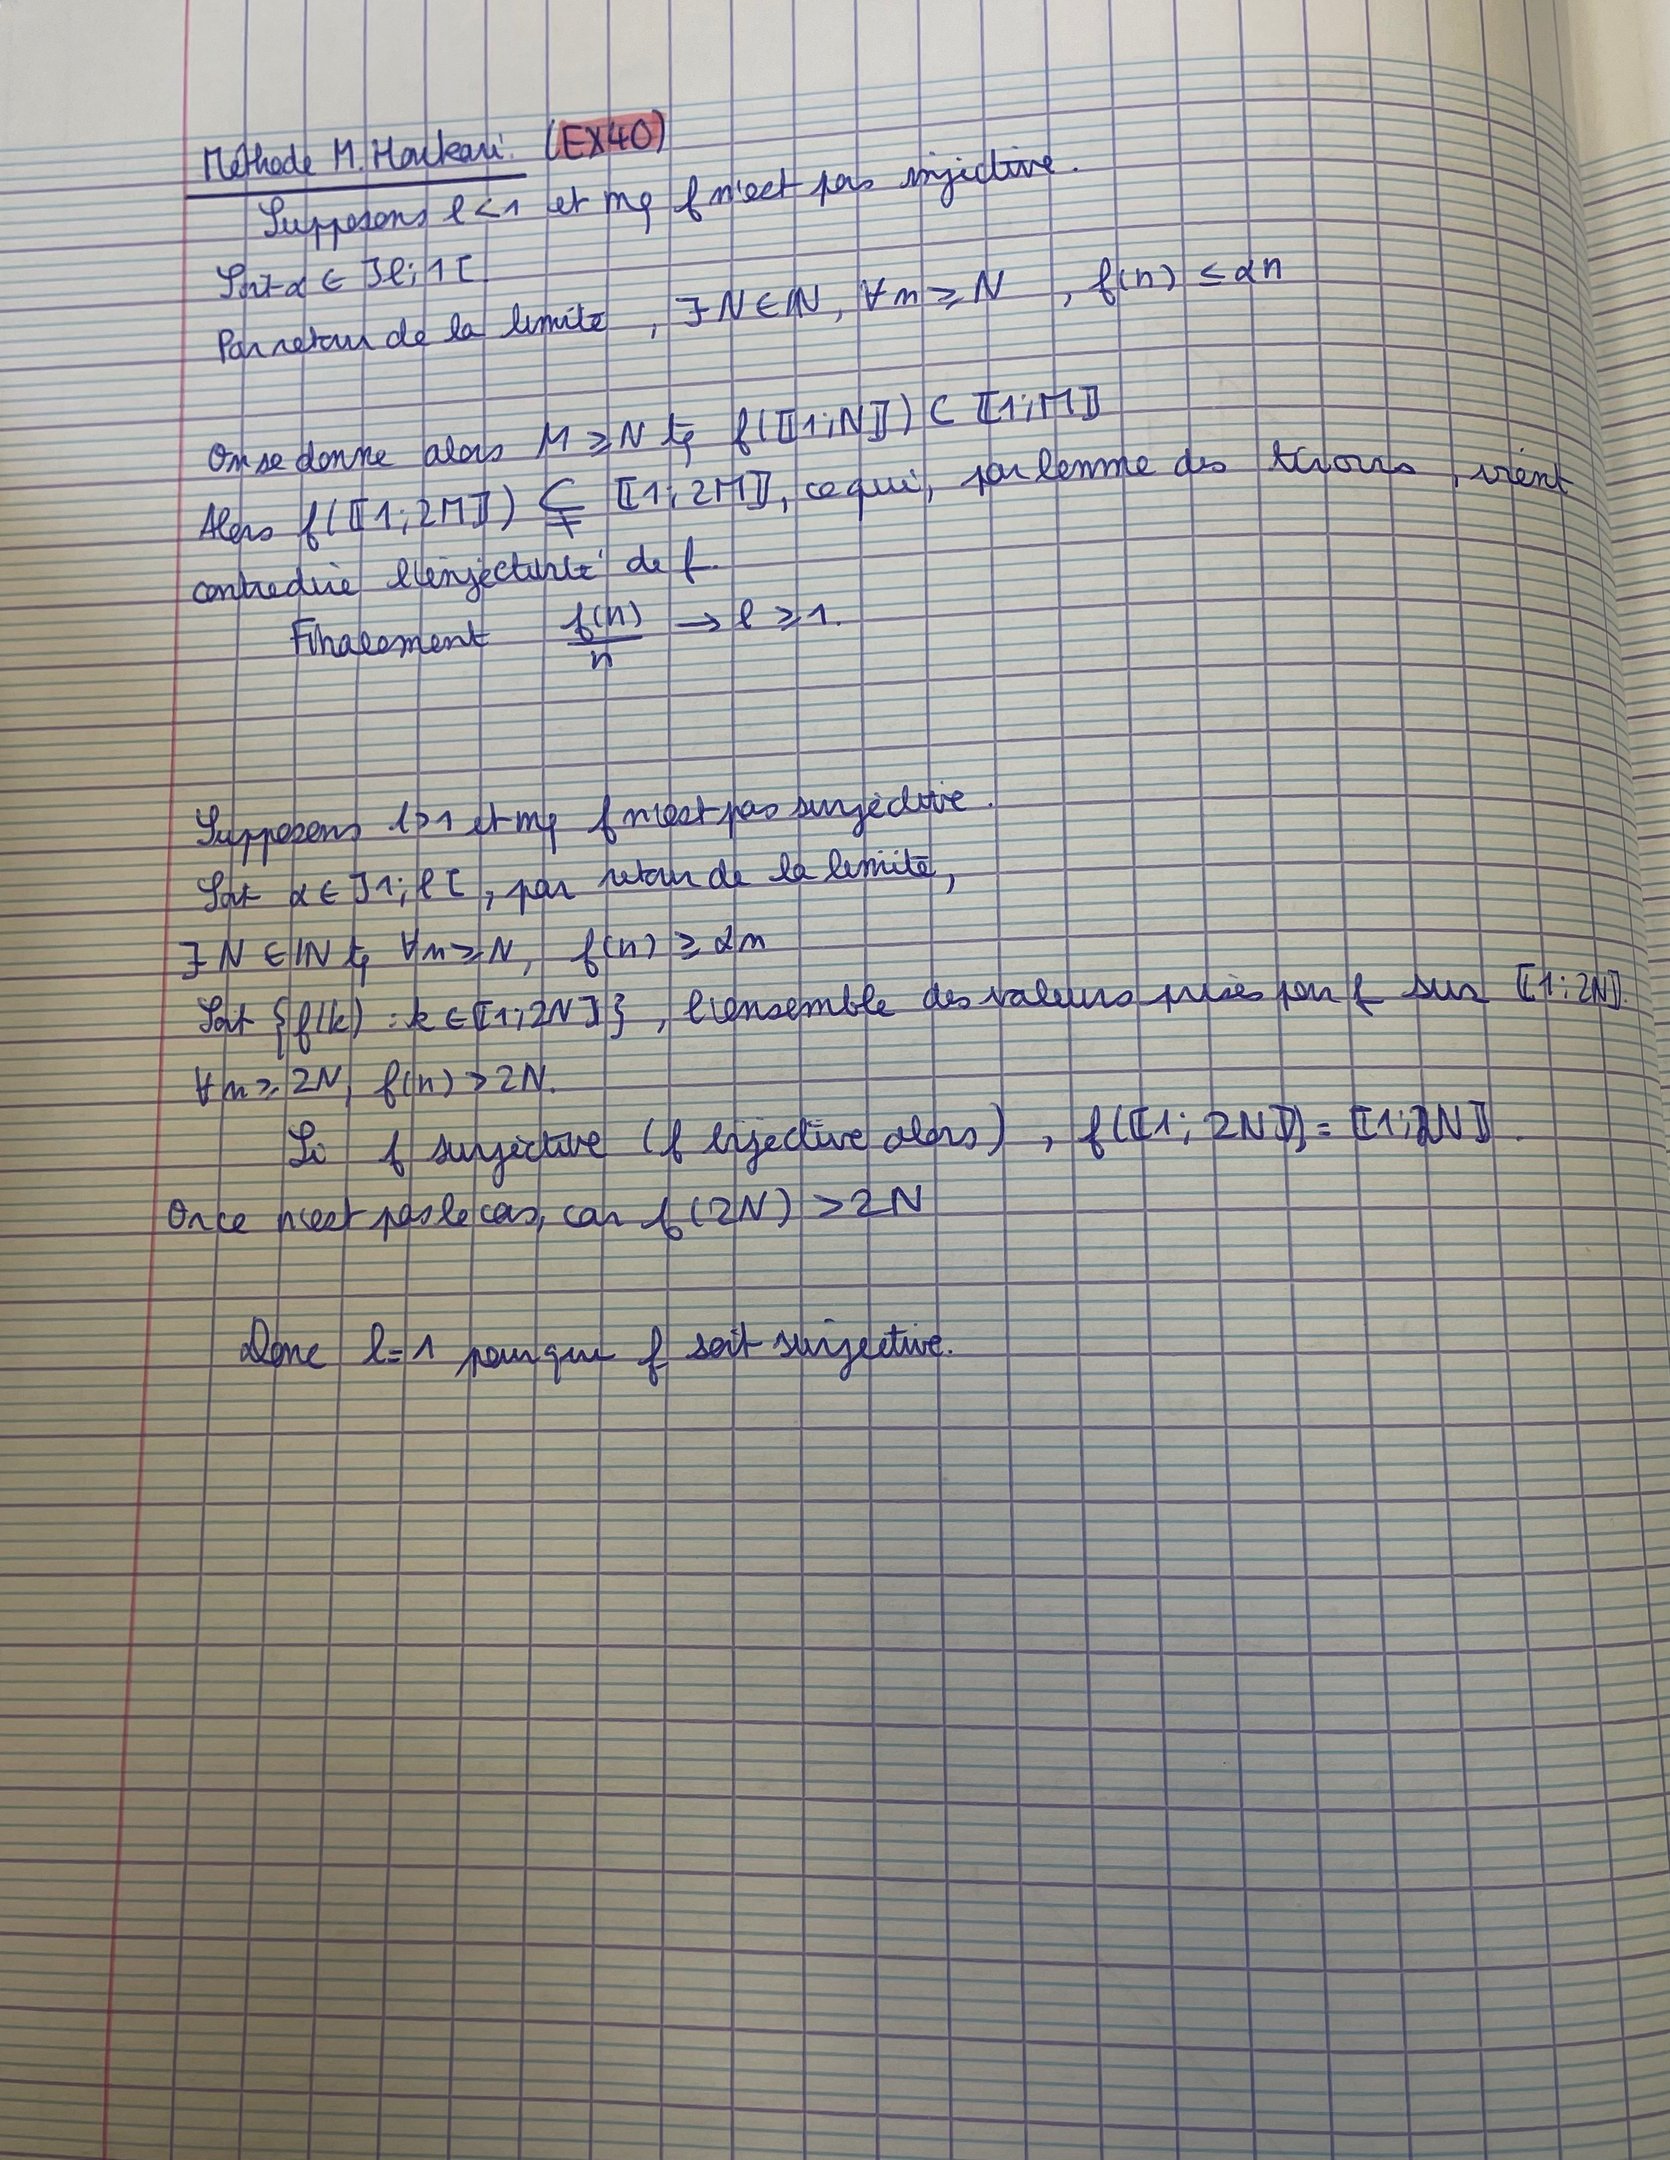 Méthode M. Houkari. (EX40)
Supposons l<1 et mq f n'est pas injective.
Soit α ∈ ]l;1[.
Par retour de la limite, ∃ N ∈ ℕ, ∀ n ≥ N, f(n) ≤ αn
On se donne alors M ≥ N tq f(⟦1;N⟧) ⊂ ⟦1;M⟧
Alors f(⟦1;2M⟧) ⊊ ⟦1;2M⟧, ce qui, par lemme des tiroirs, vient
contredire l'injectivité de f.
Finalement f(n)/n → l ≥ 1.
Supposons l>1 et mq f n'est pas surjective.
Soit α ∈ ]1;l[, par retour de la limite,
∃ N ∈ ℕ tq ∀n ≥ N, f(n) ≥ αn
Soit {f(k) : k ∈ ⟦1;2N⟧}, l'ensemble des valeurs prises par f sur ⟦1;2N⟧.
∀ n ≥ 2N, f(n) > 2N.
Si f surjective (f bijective alors), f(⟦1;2N⟧) = ⟦1;2N⟧.
Or ce n'est pas le cas, car f(2N) > 2N
Donc l=1 pour que f soit surjective.